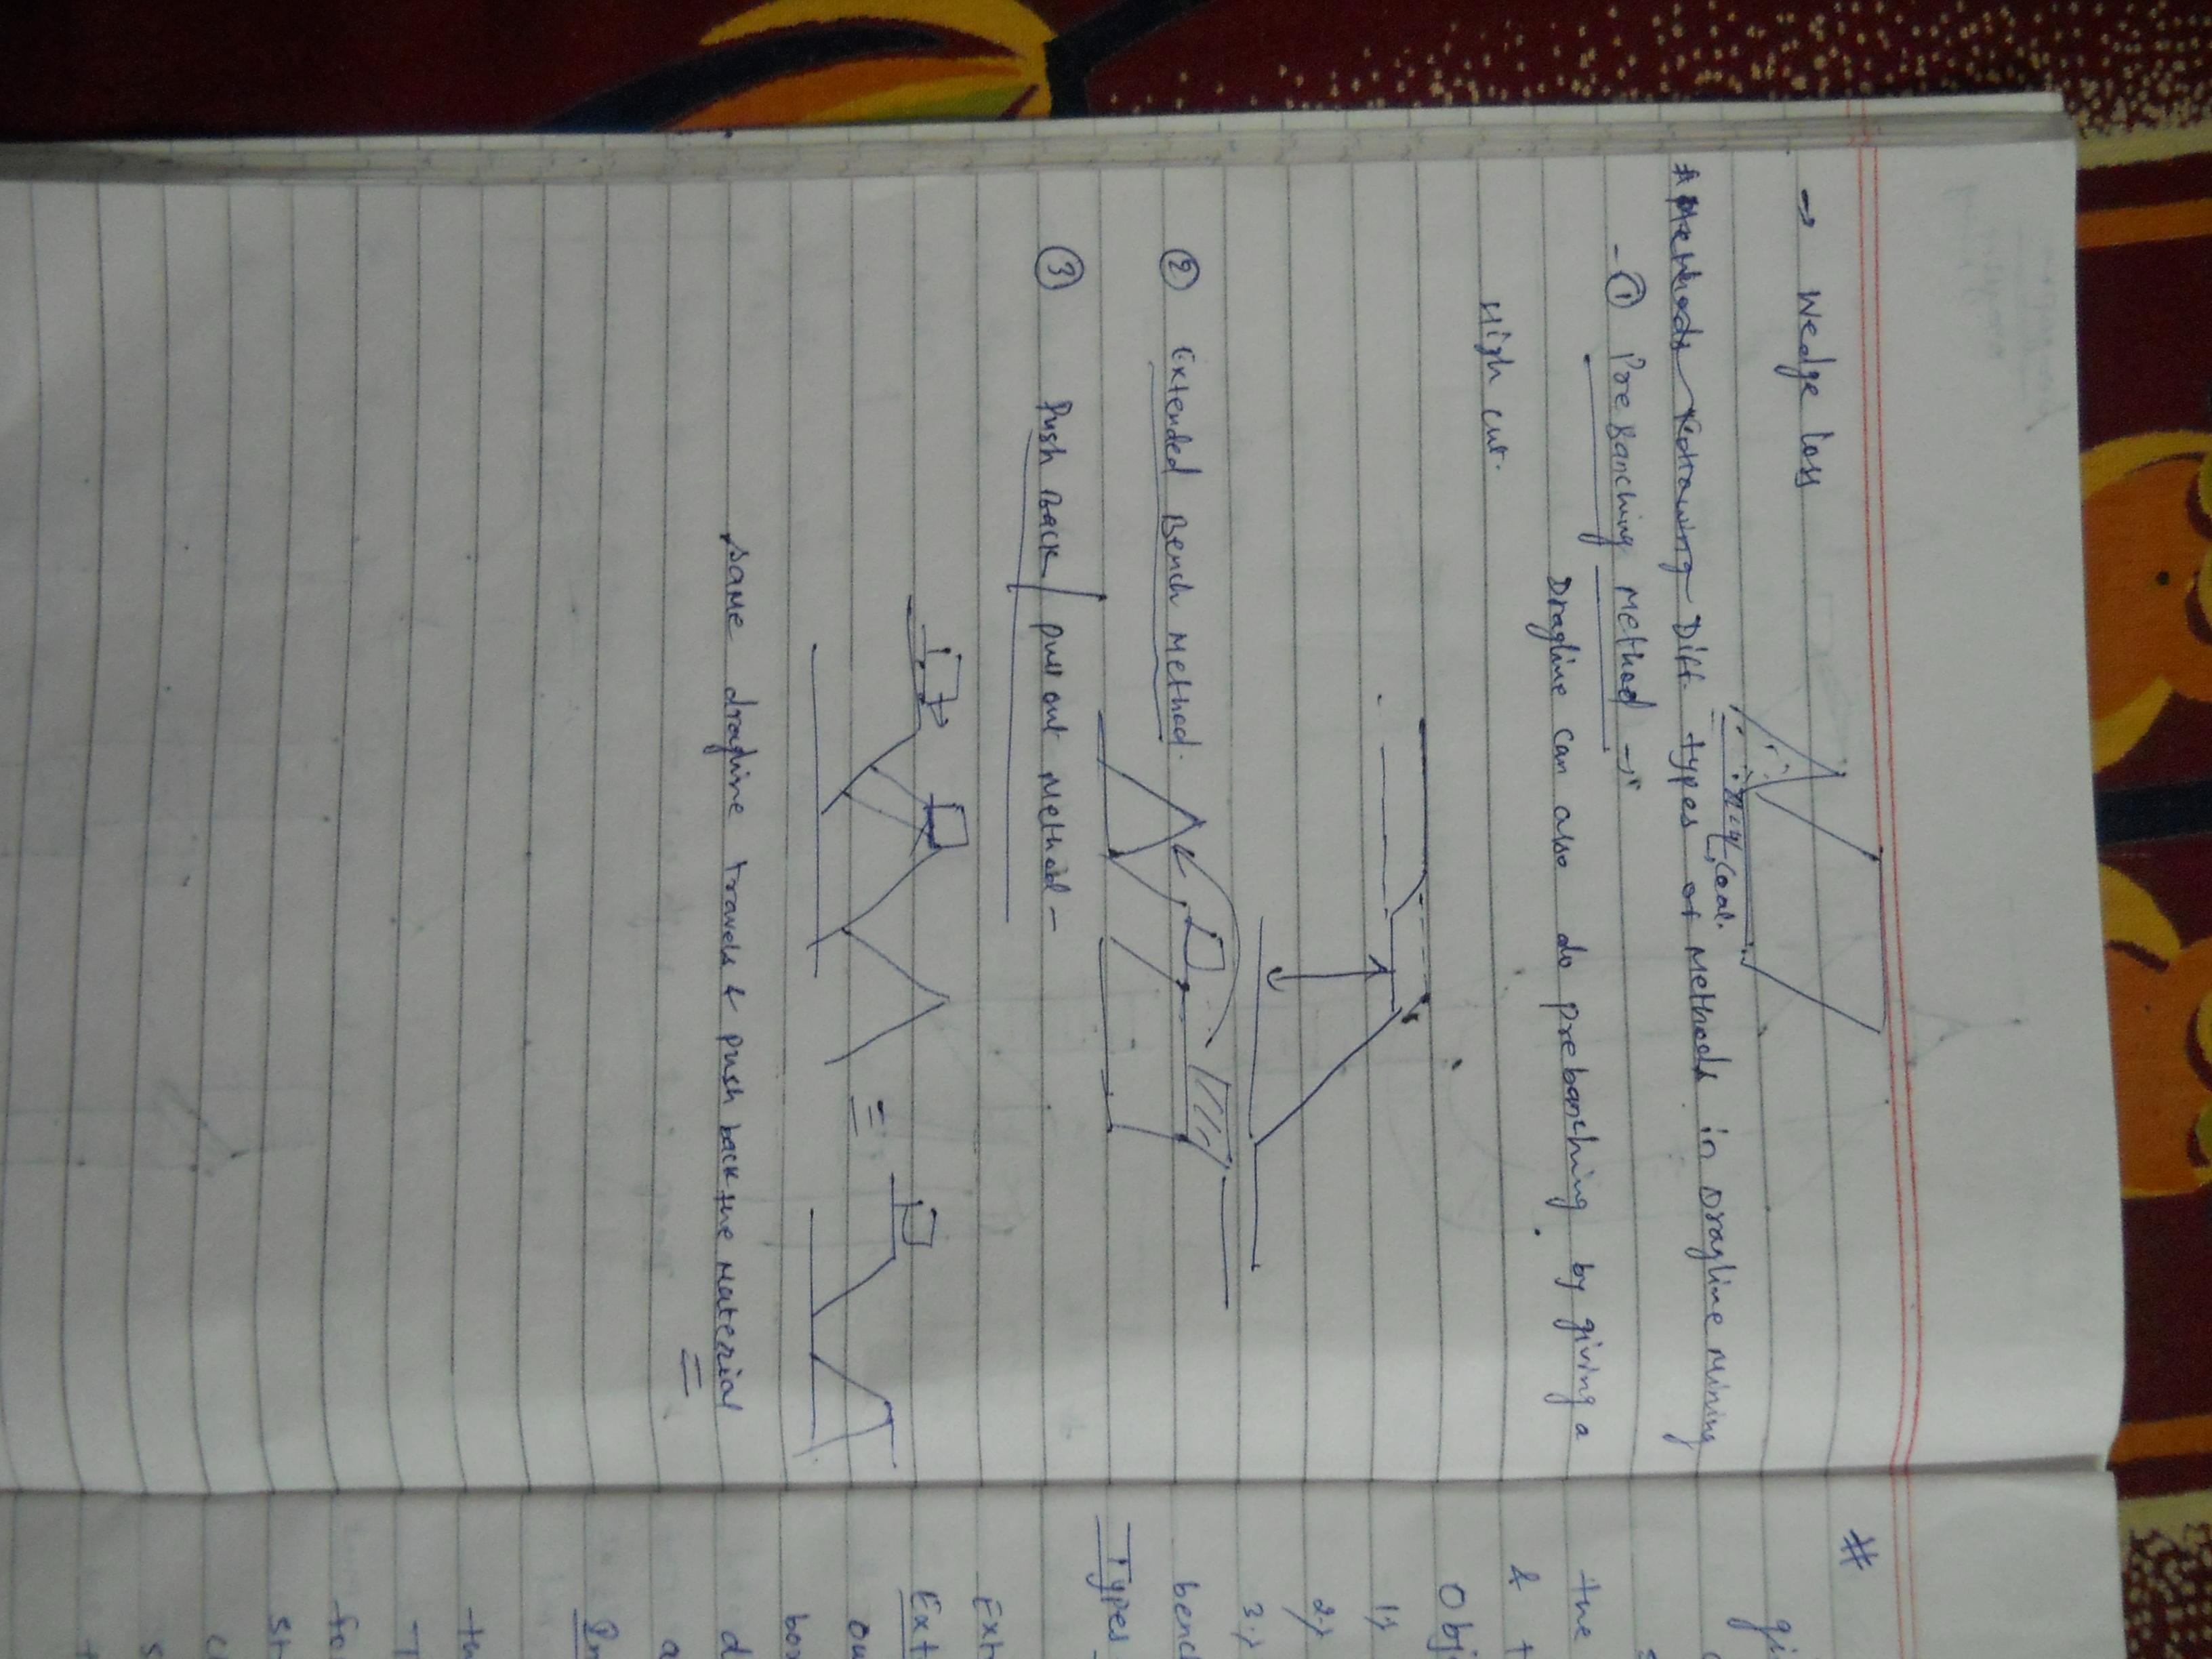 → Wedge loss
Coal.
# Diff. types of Methods in Dragline Mining
- ① Pre Banching Method →
Dragline can also do prebanching by giving a
High cut.
② Extended Bench Method.
③ Push Back / pull out Method -
same dragline travels & push back the material
#
gi
the
& t
Obj
1)
2)
3)
bench
Types
Ext
Ext
ou
bo
d
a
th
T
fo
st
s